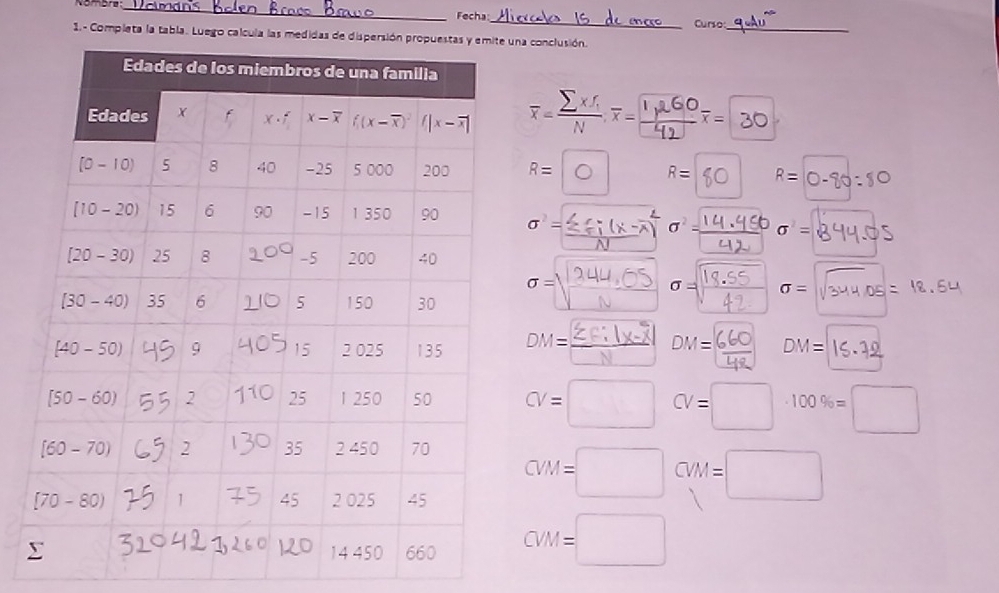 Nombre: Damaris Belen Bravo Bravo Fecha: Miercoles 15 de enero Curso:
1.- Completa la tabla. Luego calcula las medidas de dispersión propuestas y emite una conclusión.
Edades de los miembros de una familia
Edades x f x·f x−x̄ f(x−x̄)² f|x−x̄|
[0 – 10) 5 8 40 -25 5 000 200
[10 – 20) 15 6 90 -15 1 350 90
[20 – 30) 25 8 200 -5 200 40
[30 – 40) 35 6 210 5 150 30
[40 – 50) 45 9 405 15 2 025 135
[50 – 60) 55 2 110 25 1 250 50
[60 – 70) 65 2 130 35 2 450 70
[70 – 80) 75 1 75 45 2 025 45
Σ 320 42 1,260 120 14 450 660
x̄ = ∑xf/N; x̄ = 1,260/42 x̄ = 30
R = 0 R = 80 R = 0-80=80
σ² = ∑fi(x-x̄)²/N σ² = 14.450/42 σ² = 344.05
σ = √344.05/N σ = √18.55/42 σ = √344.05 = 18.54
DM = ∑fi|x-x̄|/N DM = 660/42 DM = 15.72
CV = CV = ·100 % =
CVM = CVM =
CVM =